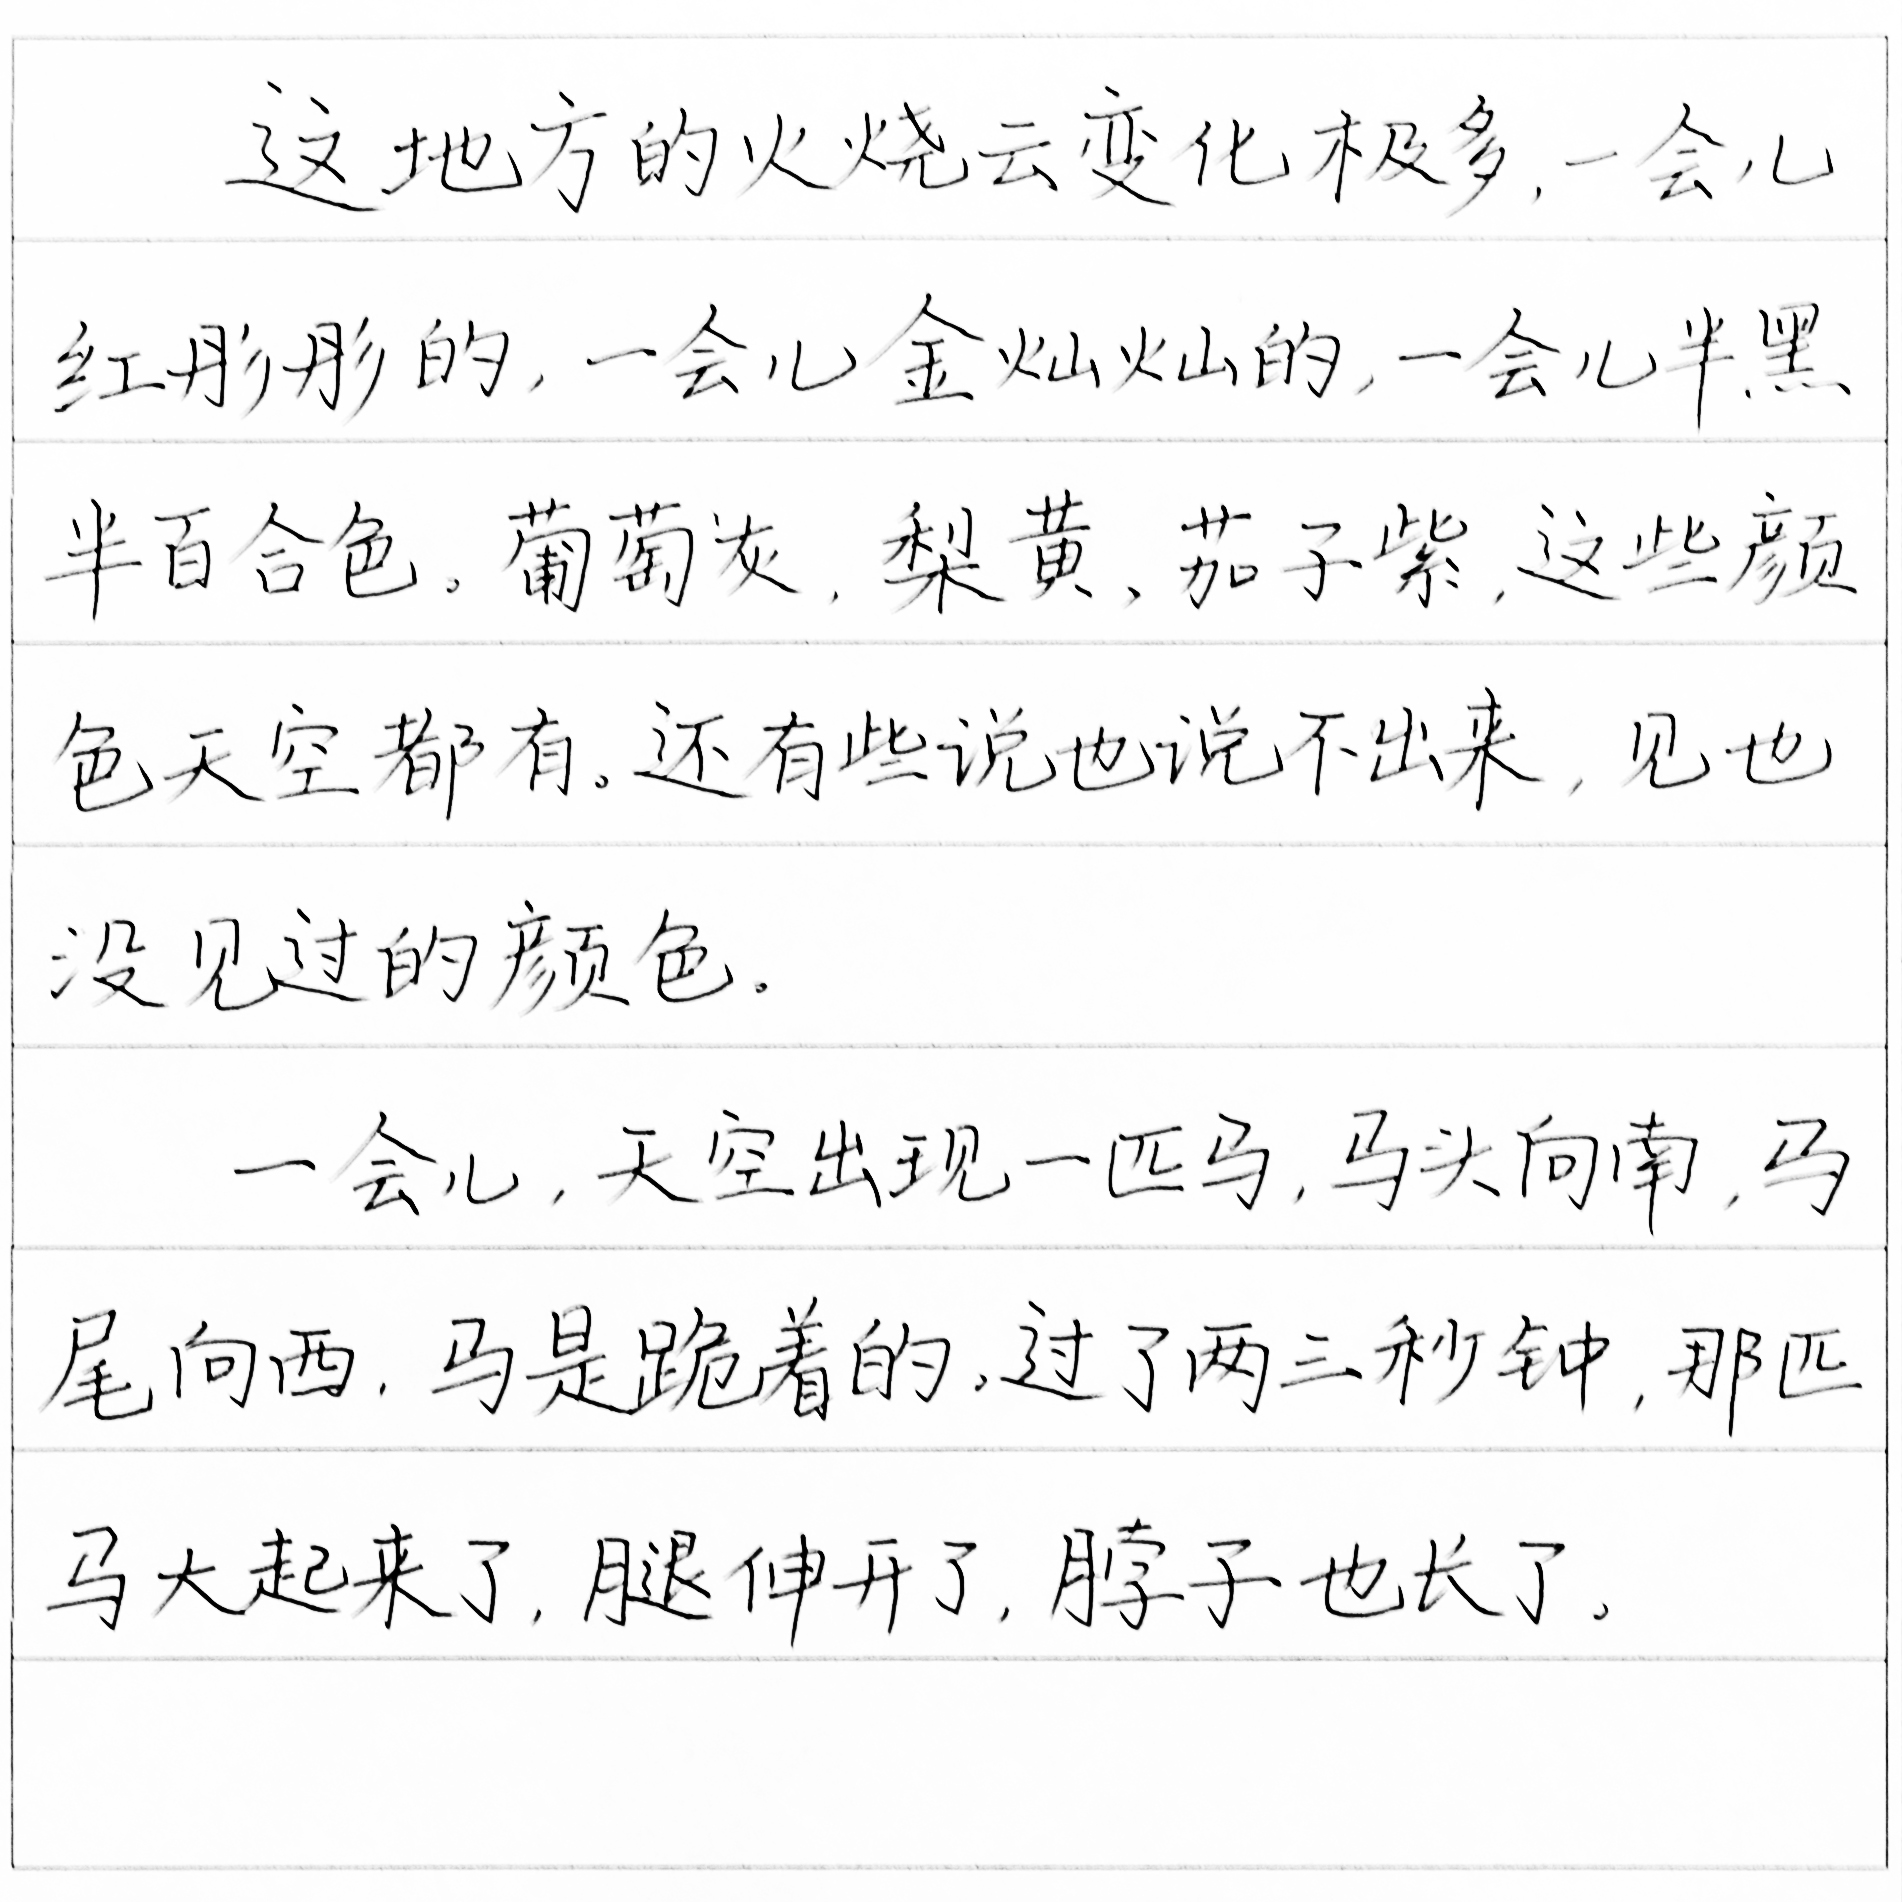 这地方的火烧云变化极多,一会儿
红彤彤的,一会儿金灿灿的,一会儿半黑
半百合色。葡萄灰,梨黄、茄子紫,这些颜
色天空都有。还有些说也说不出来,见也
没见过的颜色。
一会儿,天空出现一匹马,马头向南,马
尾向西,马是跪着的.过了两三秒钟,那匹
马大起来了,腿伸开了,脖子也长了。